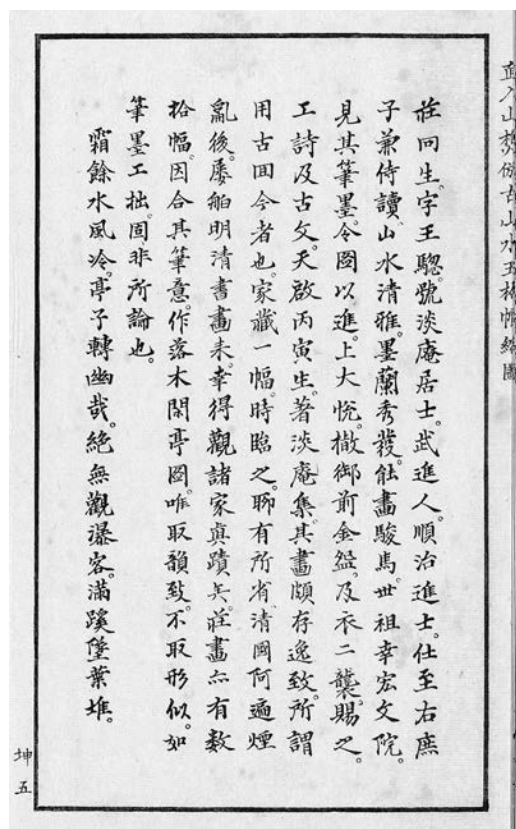 莊冋生。字王驄。號淡庵居士。武進人。順治進士。仕至右庶
子兼侍讀。山水清雅。墨蘭秀發。能畫駿馬。世祖幸宏文院。
見其筆墨。令圖以進。上大悅。撤御前金盌。及衣二襲。賜之。
工詩及古文。天啟丙寅生。著淡庵集。其畫頗存逸致。所謂
用古回今者也。家藏一幅。時臨之。聊有所省。清國阿遍煙
亂後。屡舶明清書畫来。幸得觀諸家真蹟矣。莊畫亦有数
拾幅。因合其筆意。作落木閑亭圖。唯取韻致。不取形似。如
筆墨工拙。固非所論也。
霜餘水風冷。亭子轉幽哉。絶無觀瀑客。滿蹊墮葉堆。
坤五